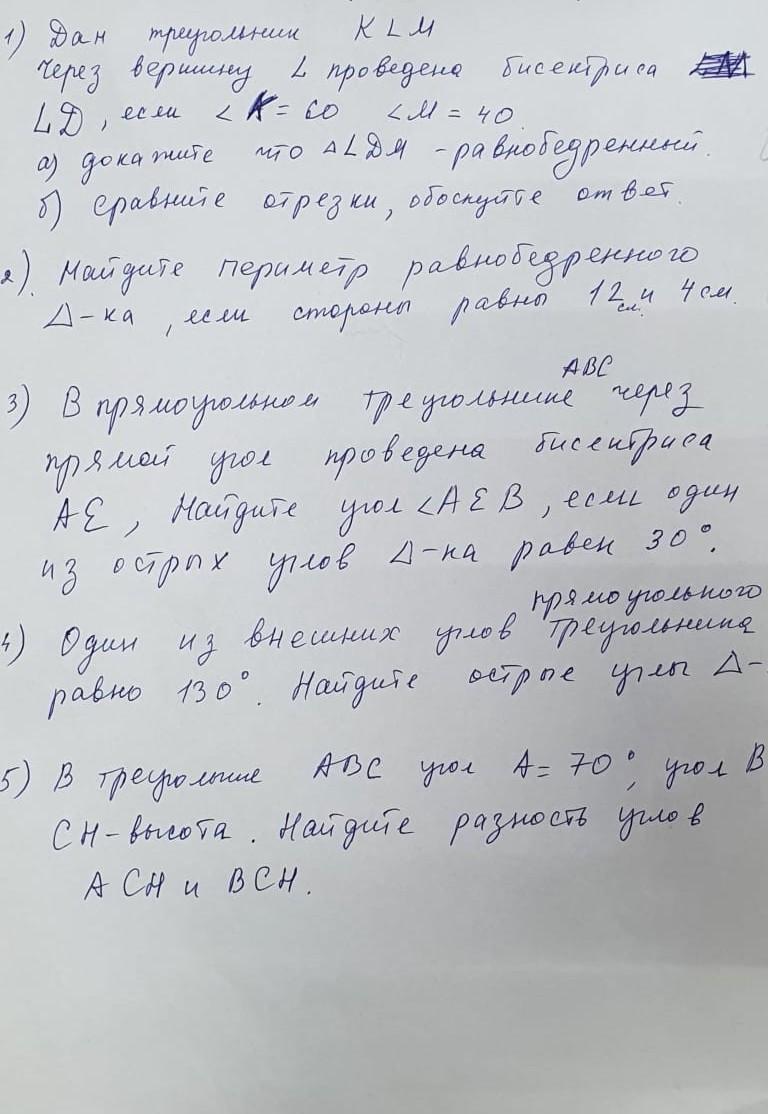 1) Дан треугольник KLM
через вершину L проведена бисектриса
LD, если <K = 60 <M = 40.
а) докажите что △LDM - равнобедренный.
б) сравните отрезки, обоснуйте ответ.
2). Найдите периметр равнобедренного
△-ка, если стороны равны 12 см. и 4 см.
ABC
3) В прямоугольном треугольнике через
прямой угол проведена бисектриса
AE, Найдите угол <AEB, если один
из острых углов △-ка равен 30°.
прямоугольного
4) Один из внешних углов треугольника
равно 130°. Найдите острые углы △-
5) В треуголние ABC угол A = 70°, угол B
CH - высота. Найдите разность углов
ACH и BCH.